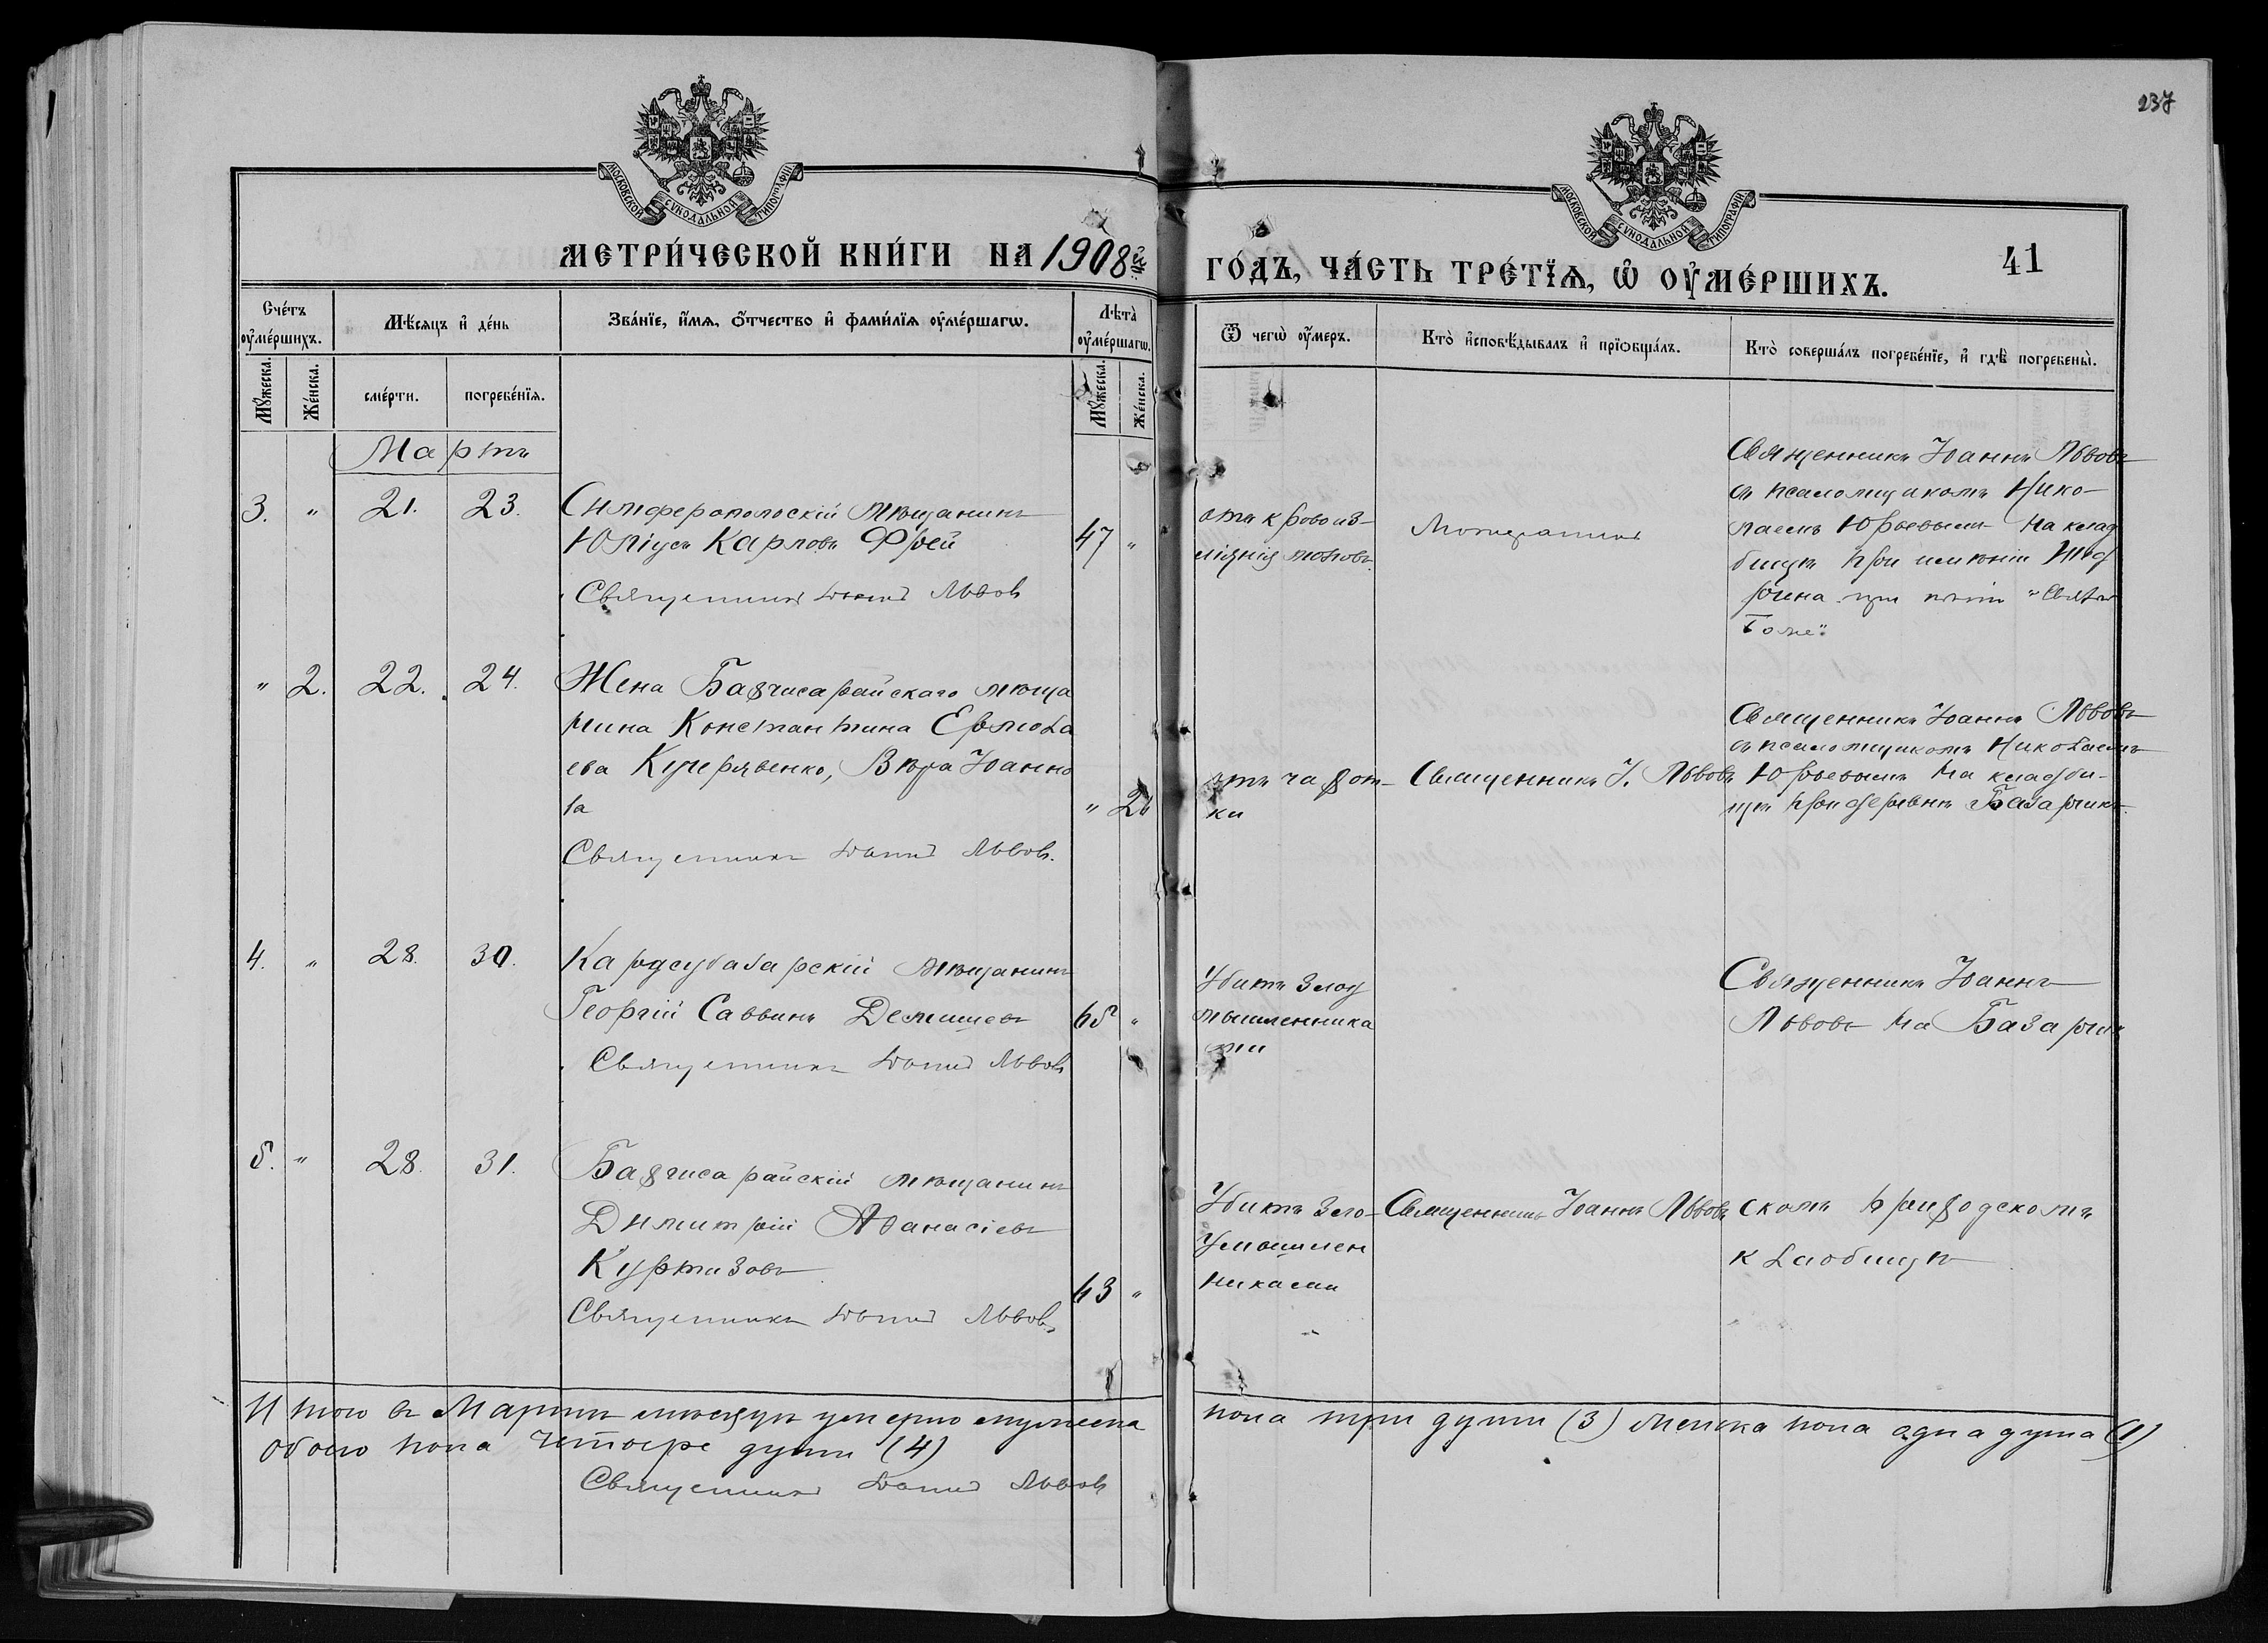 237
МОСКОВСКОЙ СУНОДАЛЬНОЙ ТИПОГРАФІИ
МОСКОВСКОЙ СУНОДАЛЬНОЙ ТИПОГРАФІИ
МЕТРИ́ЧЕСКОЙ КНИ́ГИ НА 1908й
ГО́ДЪ, ЧА́СТЬ ТРЕ́ТЇѦ, Ѡ҆ ОУ҆МЕ́РШИХЪ.
41
Сче́тъ оу҆ме́ршихъ.
Мѣ́сяцъ и҆ де́нь
Зва́нїе, и҆́мя, ѻ҆́тчество и҆ фами́лїя оу҆ме́ршагѡ.
Лѣ́та оу҆ме́ршагѡ.
Ѿ чегѡ̀ оу҆́меръ.
Кто̀ и҆сповѣ́дывалъ и҆ прїѻбща́лъ.
Кто̀ соверша́лъ погребе́нїе, и҆ гдѣ̀ погребены̀.
Мꙋ́жеска.
Же́нска.
сме́рти.
погребе́нїя.
Мꙋ́жеска.
Же́нска.
Мартъ
3. " 21. 23.
Симферополоскій мѣщанинъ
Юліусъ Карловъ Фрей
47 "
Священникъ Іоаннъ Львовъ
отъ кровоиз-
ліянія
Священникъ Іоаннъ Львовъ
съ псаломщикомъ Нико-
лаемъ Юрьевымъ на клад
бищѣ при имѣніи
при пѣніи "Святый
Боже".
" 2. 22. 24.
Жена Бахчисарайскаго мѣща
нина Константина Ермола
ева Кучерявенко, Вѣра Іоанно
ва
"
Священникъ Іоаннъ Львовъ.
отъ чахот-
ки
Священникъ І. Львовъ
Священникъ Іоаннъ Львовъ
съ псаломщикомъ Николаемъ
Юрьевымъ на кладби-
щѣ при деревнѣ Базарчикъ
4. " 28. 30.
Карасубазарскій мѣщанинъ
Георгій Саввинъ
65 "
Священникъ Іоаннъ Львовъ
Убитъ злоу
мышленника
ми
Священникъ Іоаннъ
Львовъ на Базарчик
5. " 28. 31.
Бахчисарайскій мѣщанинъ
Димитрій Аѳанасіевъ
Куртизовъ
43 "
Священникъ Іоаннъ Львовъ
Убитъ зло-
умышлен
никами
Священникъ Іоаннъ Львовъ
скомъ приходскомъ
кладбищѣ
Итого въ Мартѣ мѣсяцѣ умерло мужеска
пола три души (3) женска пола одна душа (1)
обоего пола четыре души (4)
Священникъ Іоаннъ Львовъ